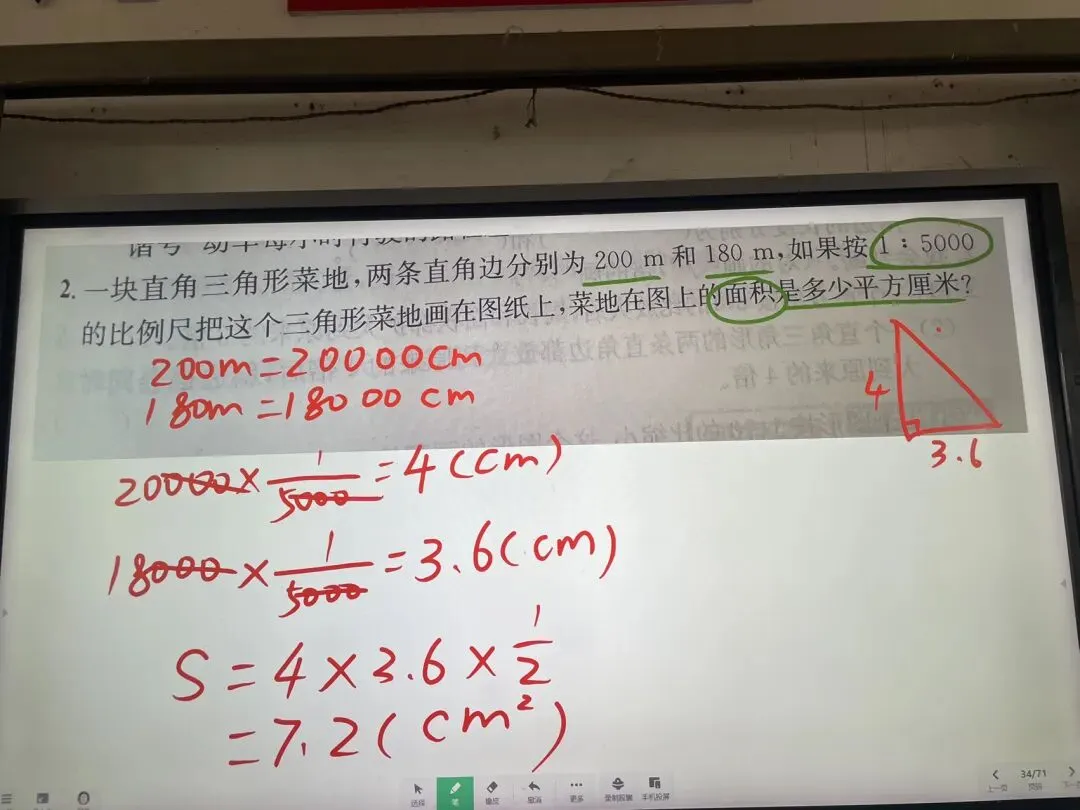 2. 一块直角三角形菜地，两条直角边分别为 200 m 和 180 m，如果按 1∶5000
的比例尺把这个三角形菜地画在图纸上，菜地在图上的面积是多少平方厘米？
200m=20000cm
180m=18000cm
20000×1/5000=4(cm)
18000×1/5000=3.6(cm)
S=4×3.6×1/2
=7.2(cm²)
4
3.6
选择 笔 橡皮 撤消 更多 录制胶囊 手机投屏
34/71
上一页 页码